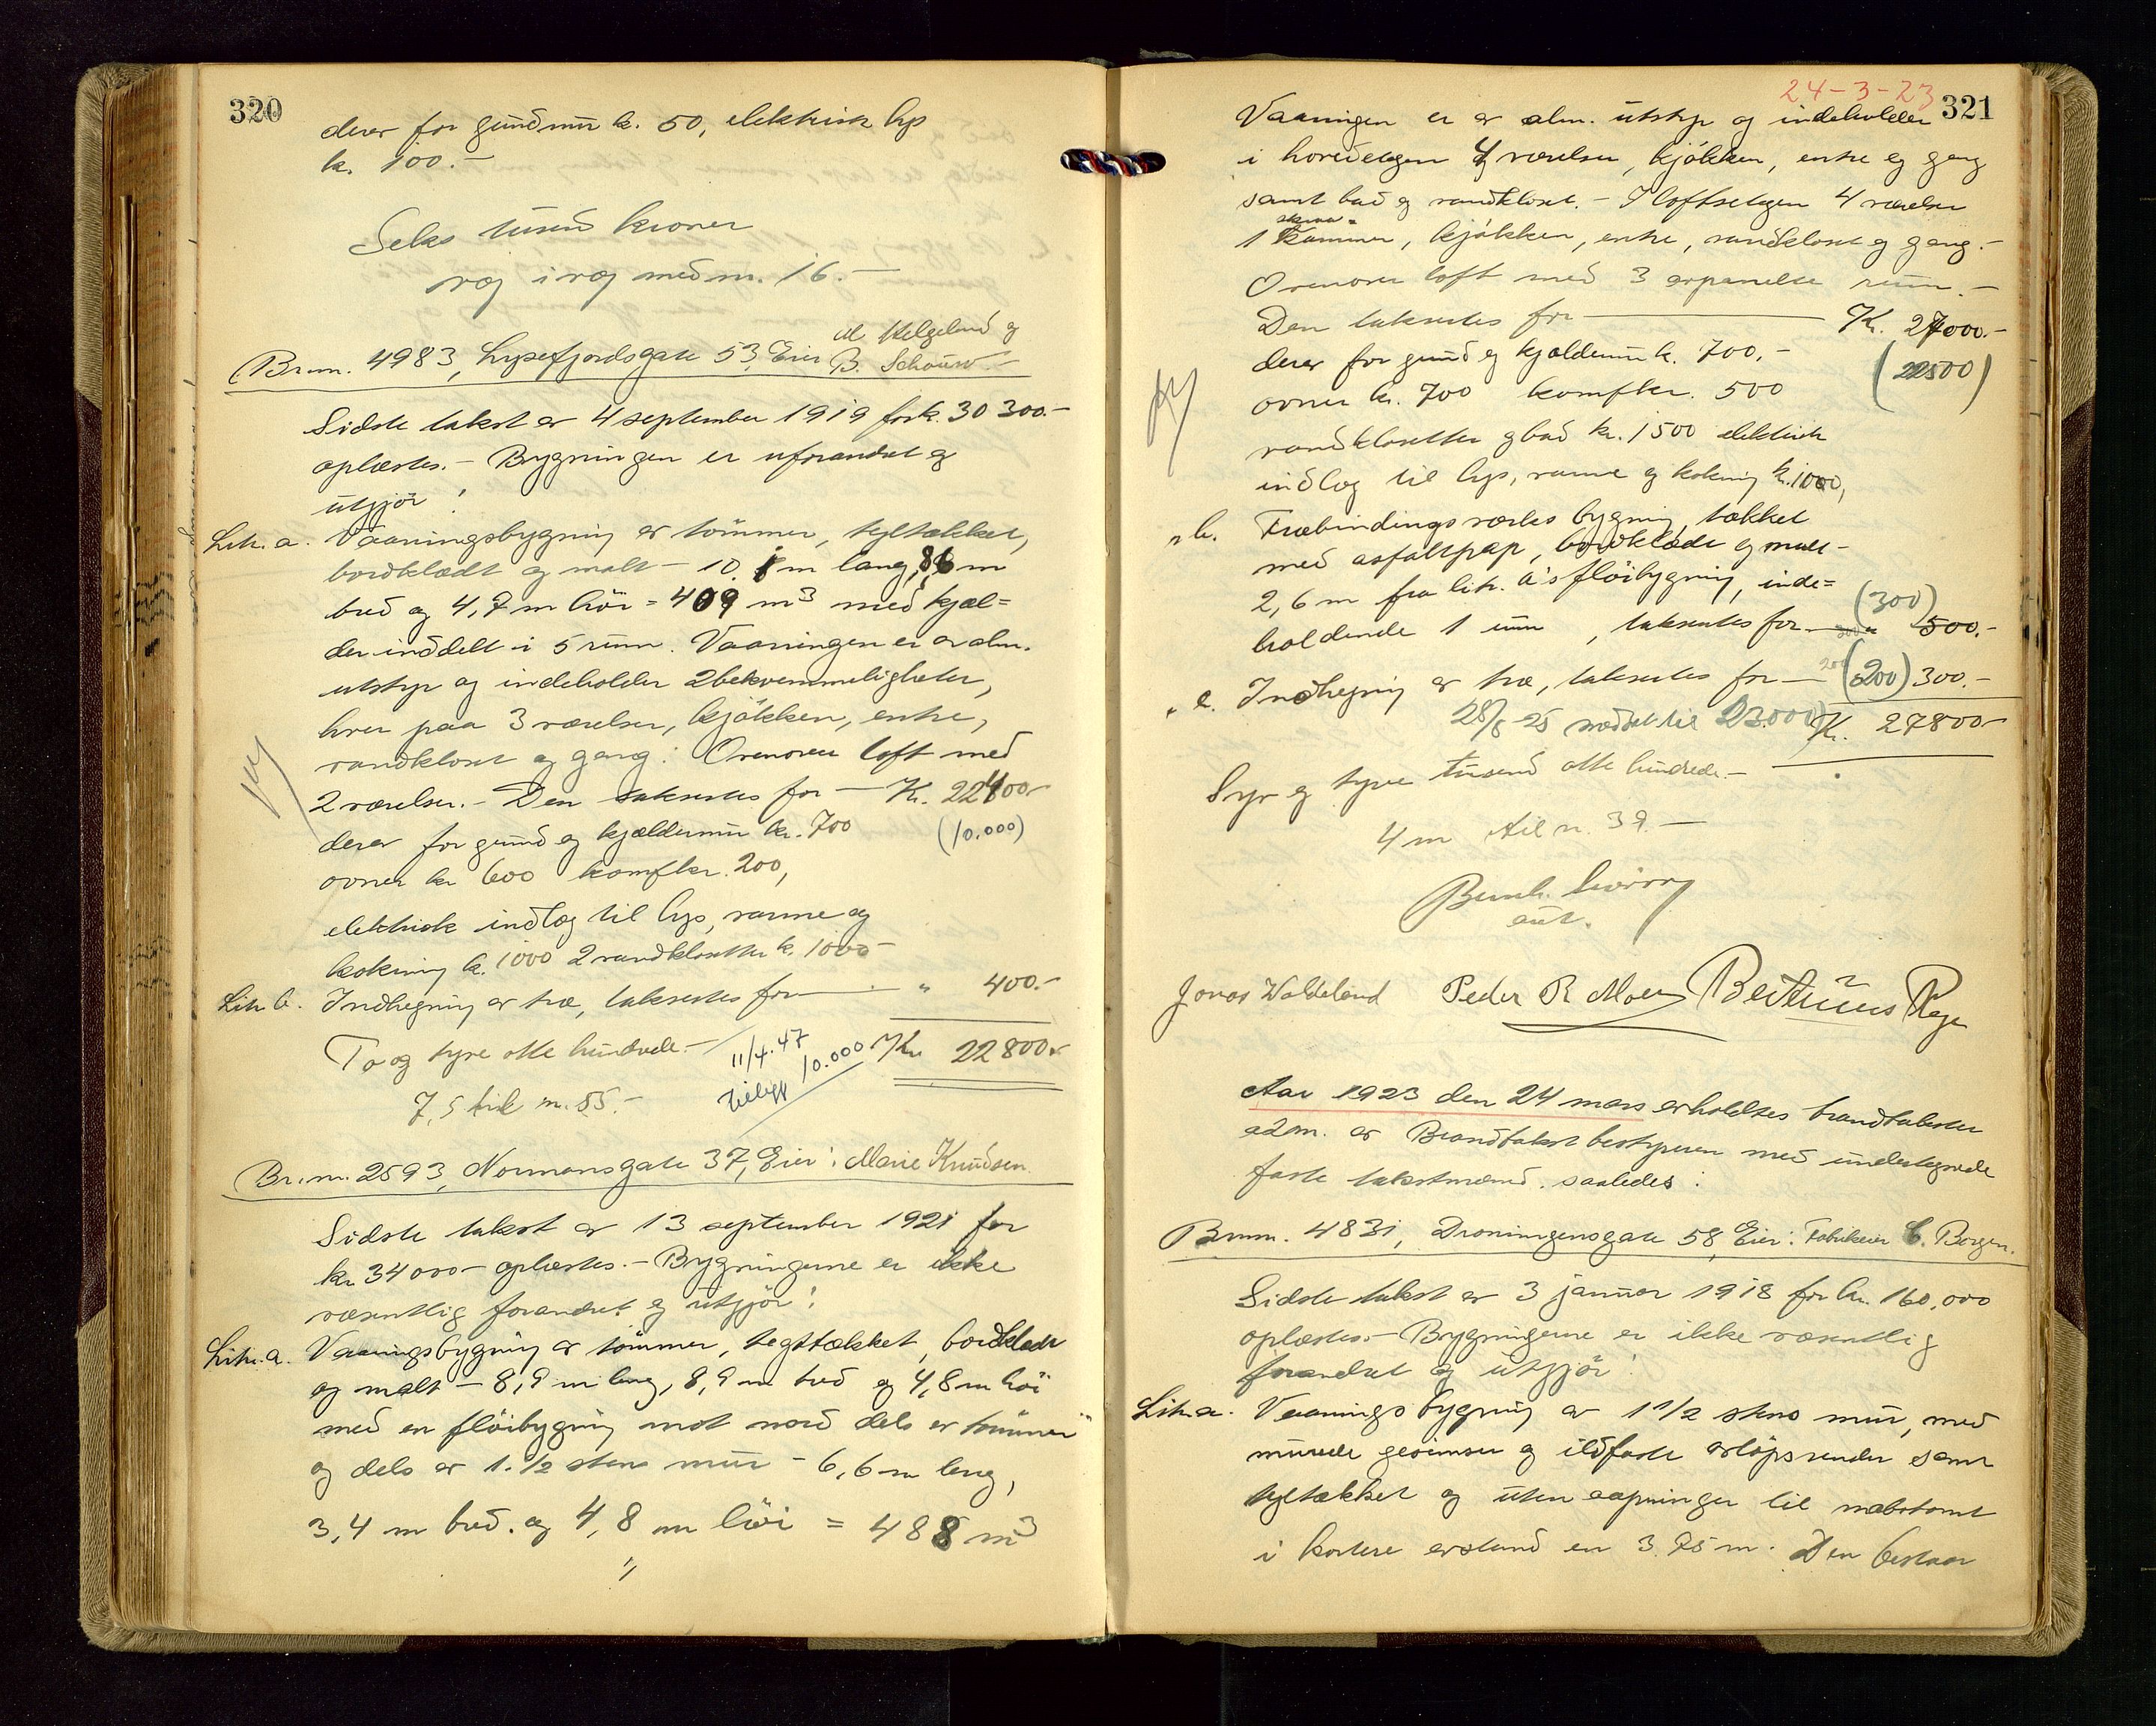 320
derav for grundmur kr. 50, elektrisk lys
kr. 100.-
Seks tusend kroner
væg i væg med nr. 16.-
Br.nr. 4983, Lysefjordsgate 53, Eier M. Helgeland og
B. Schouw.-
Sidste takst av 4 september 1919 for kr. 30 300.-
oplæstes.- Bygningen er uforandret og
utgjör:
Litr. a. Vaaningsbygning av tömmer, tegltækket,
bordklædt og malt - 10,1 m lang, 8,6 m
bred og 4,7 m höi = 409 m3 med kjæl=
der inddelt i 5 rum. Vaaningen er av alm.
utstyr og indeholder 2 bekvemmeligheter,
hver paa 3 værelser, kjökken, entre,
vandkloset og gang. Ovenover loft med
2 værelser.- Den taksertes for - Kr. 22400.-
derav for grund og kjældermur kr. 700 (10.000)
ovner kr 600 komf kr. 200,
elektrisk indlæg til lys, varme og
kokning kr. 1000 2 vandklosetter kr. 1000-
Litr b. Indhegning av træ, taksertes for " 400.-
To og tyve otte hundrede.- 11/4.47 Kr. 22800.-
10.000
7,5 til nr. 55.-
Br.nr. 2593, Normansgate 37, Eier: Marie Knudsen.
Sidste takst av 13 september 1921 for
kr 34000- oplæstes.- Bygningerne er ikke
væsentlig forandret og utgjör:
Litr. a. Vaaningsbygning av tömmer, tegltækket, bordklædt
og malt - 8,9 m lang, 8,9 m bred og 4,8 m höi
med en flöibygning mot nord dels av tömmer
og dels av 1.1/2 stens mur - 6,6 m lang,
3,4 m bred. og 4,8 m höi = 488 m3
24-3-23
321
Vaaningen er av alm. utstyr og indeholder
i hovedetagen 4 værelser, kjökken, entre og gang
samt bad og vandkloset.- I loftsetagen 4 værelser
1 kammer, kjökken, entre, vandkloset og gang.-
Ovenover loft med 3 avpanelte rum.-
Den taksertes for Kr. 27000.-
derav for grund og kjældermur kr. 700.- (22500)
ovner kr. 700 komf kr. 500
vandklosetter og bad kr. 1500 elektrisk
indlæg til lys, varme og kokning kr. 1000,
" b. Træbindingsverks bygning, tækket
med asfaltpap, bordklædt og malt-
2,6 m fra litr. a's flöibygning, inde=
holdende 1 rum, taksertes for (300) " 500.-
" c. Indhegning av træ, taksertes for (200) 300.-
28/8 25 nedsat til 23.000 Kr. 27800-
Syv og tyve tusend otte hundrede.-
4 m til nr. 39.-
Jonas Waldeland Peder R Moen
Aar 1923 den 24 mars avholdtes brandtakster
adm. av Brandtakst bestyreren med undertegnede
faste takstmænd. saaledes:
Br.nr. 4831, Dronningensgate 58, Eier: Fabrikeier C. Borgen.
Sidste takst av 3 januar 1918 for kr. 160,000
oplæstes.- Bygningerne er ikke væsentlig
forandret og utgjör:
Litr. a. Vaaningsbygning av 1 1/2 stens mur, med
murede gesimser og ildfaste avlöpsrender samt
tegltækket og uten aapninger til nabotomt
i kortere avstand en 3.75 m. Den bestaar